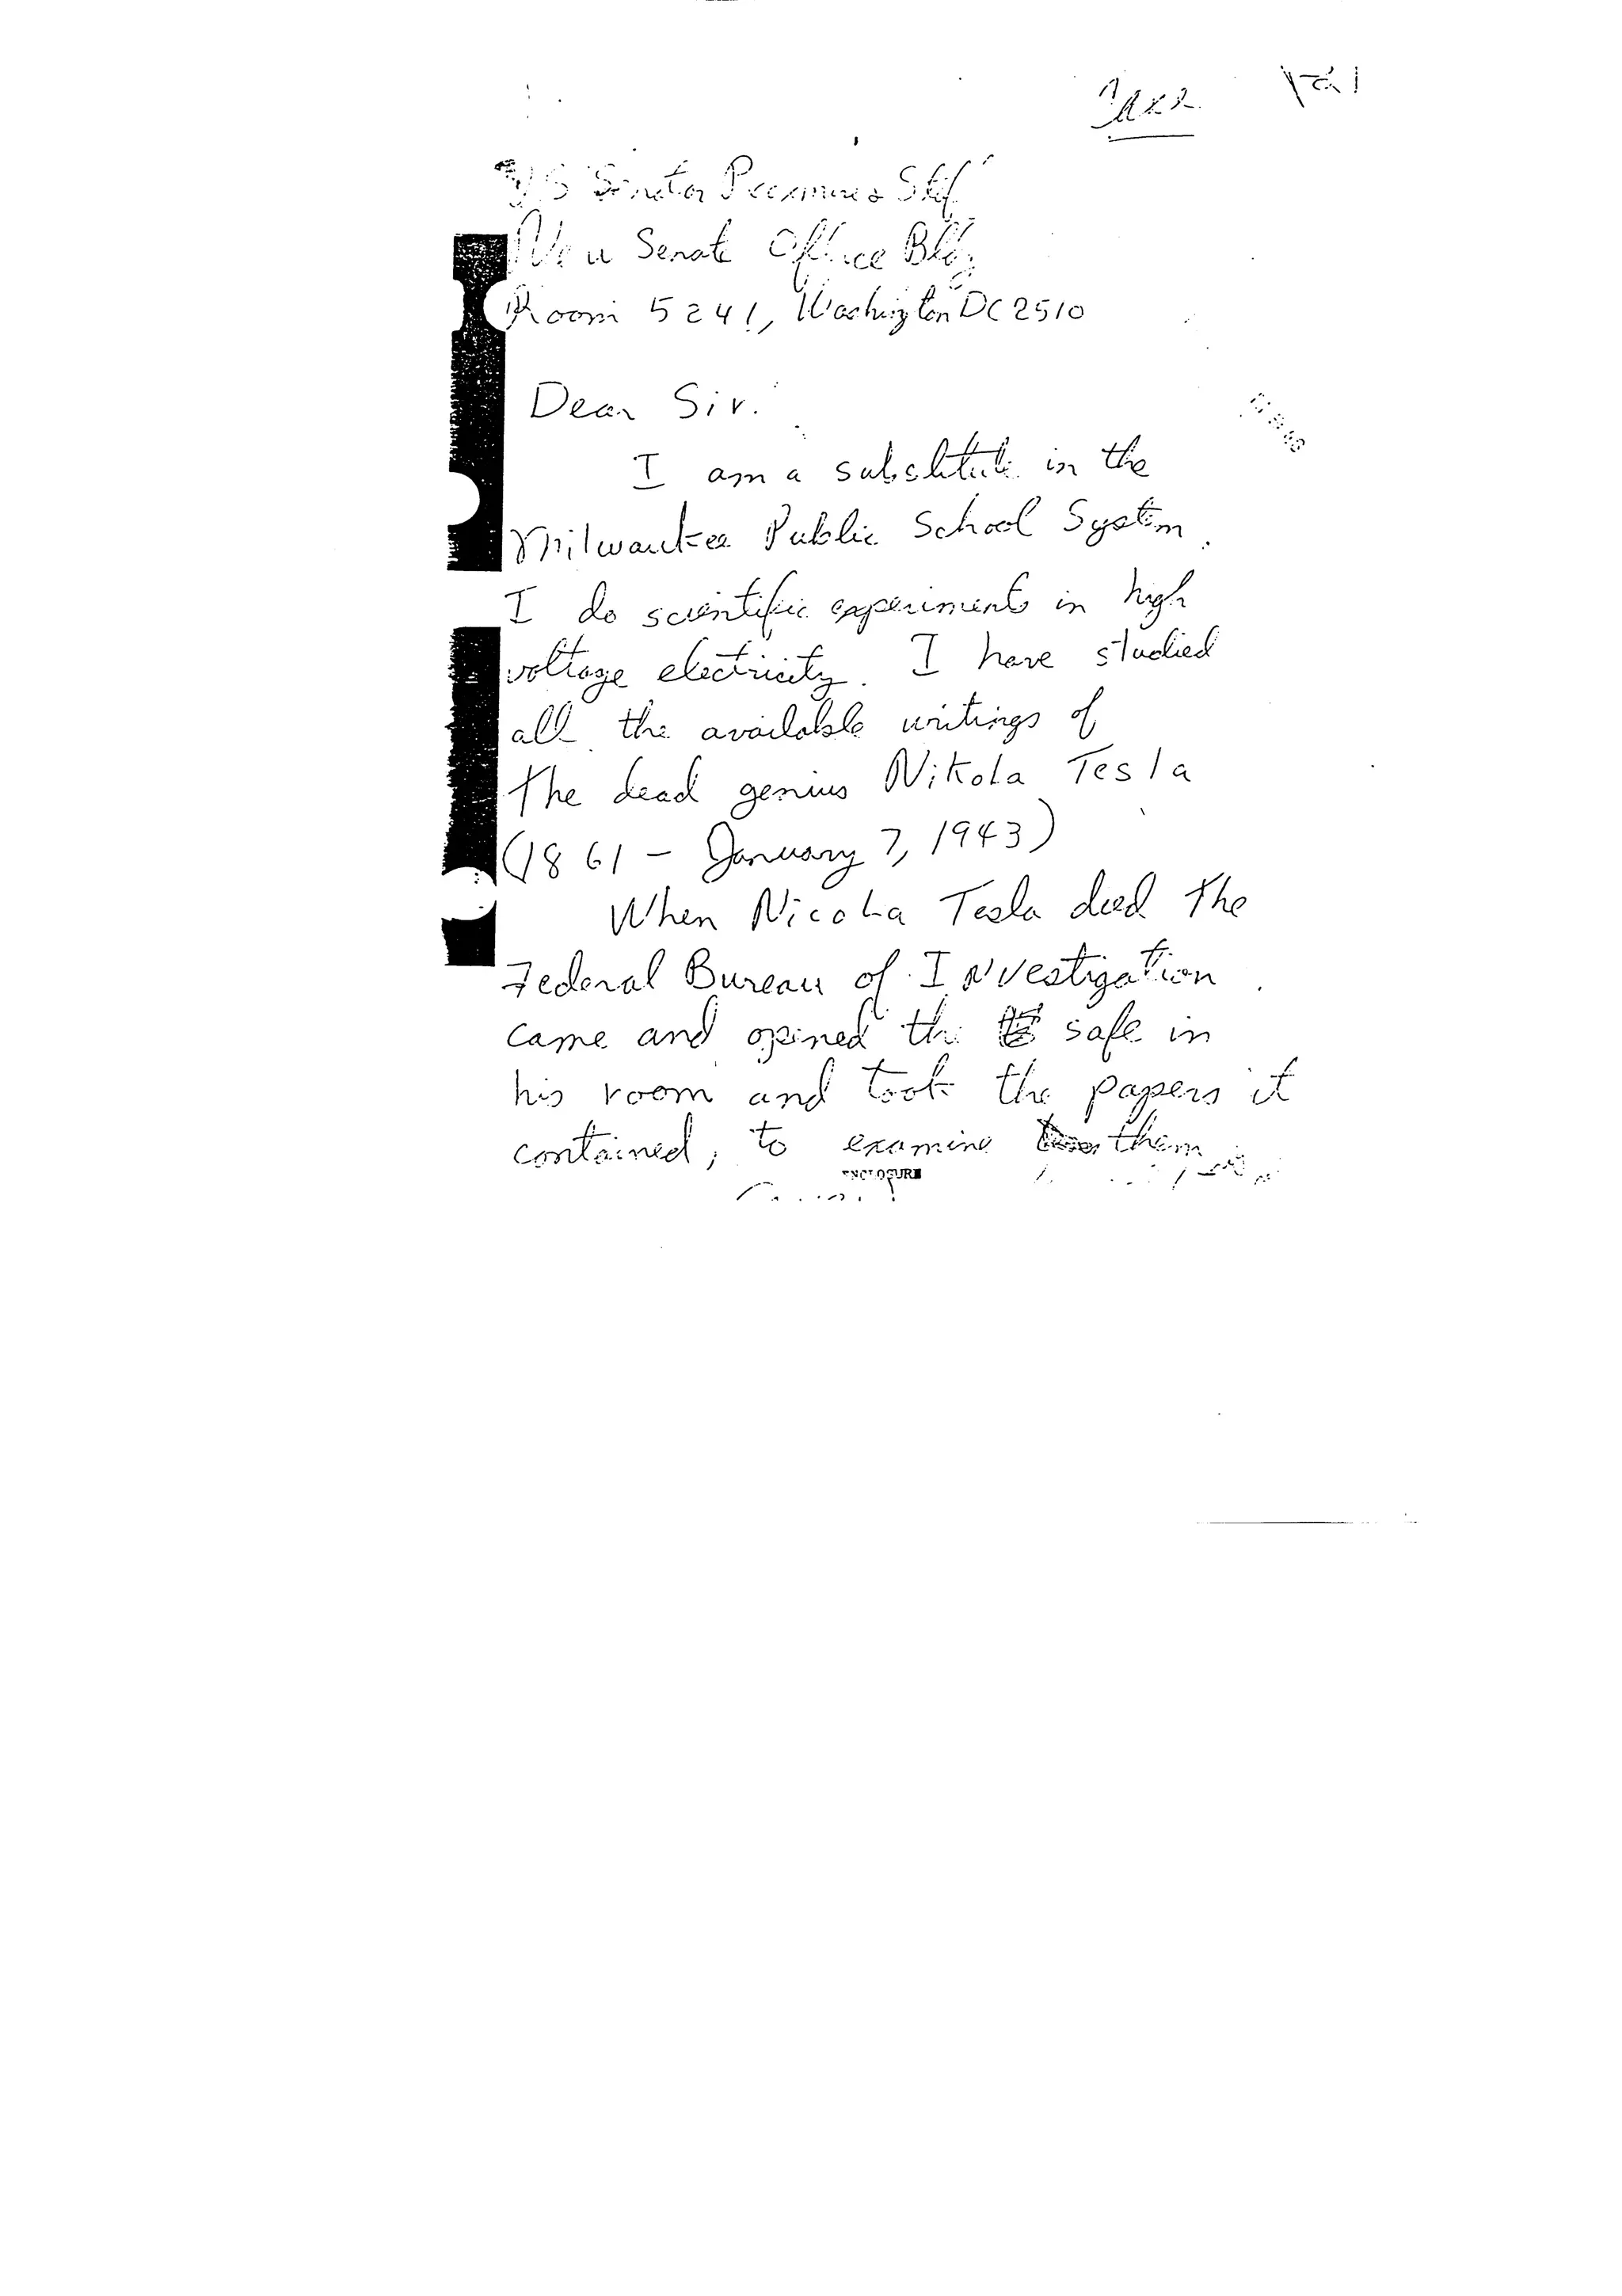 pg 1
US Senator Proxmire Stf
New Senate Office Bldg
Room 5241, Washington DC 2510
Dear Sir.
I am a substitute in the
Milwaukee Public School System.
I do scientific experiments in high
voltage electricity. I have studied
all the available writings of
the dead genius Nikola Tesla
(1861 - January 7, 1943)
When Nicola Tesla died the
Federal Bureau of Investigation
came and opened the safe in
his room and took the papers it
contained, to examine them
ENCLOSURE